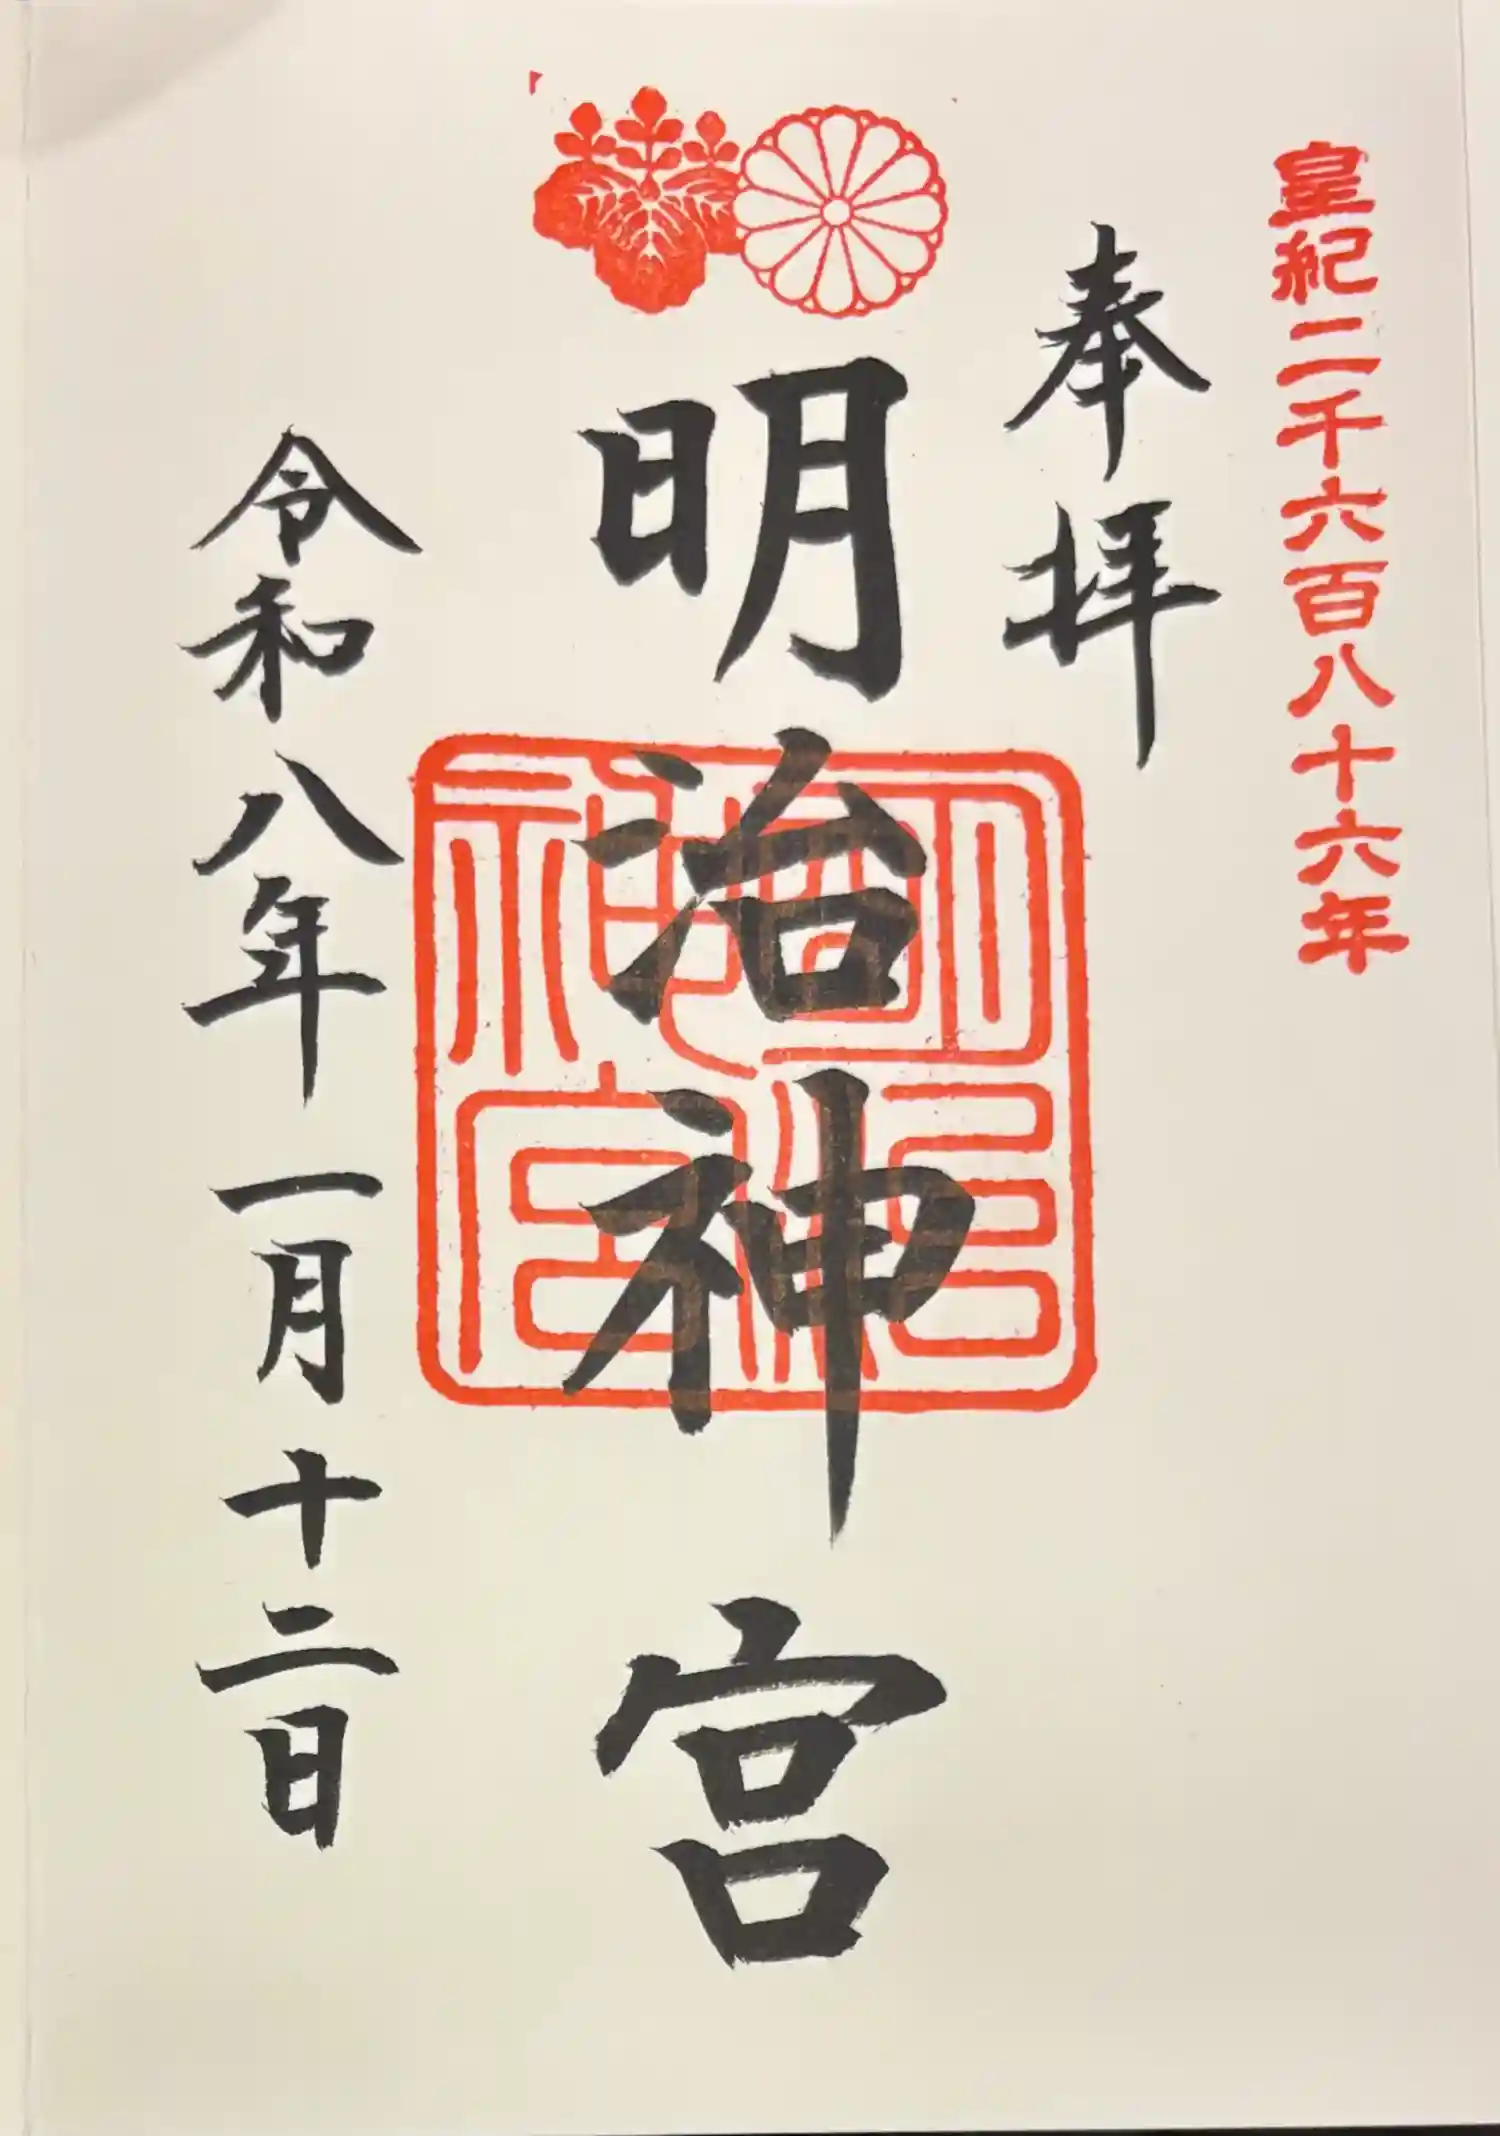 皇紀二千六百八十六年
奉拝
明治神宮
明治神宮
令和八年一月十二日